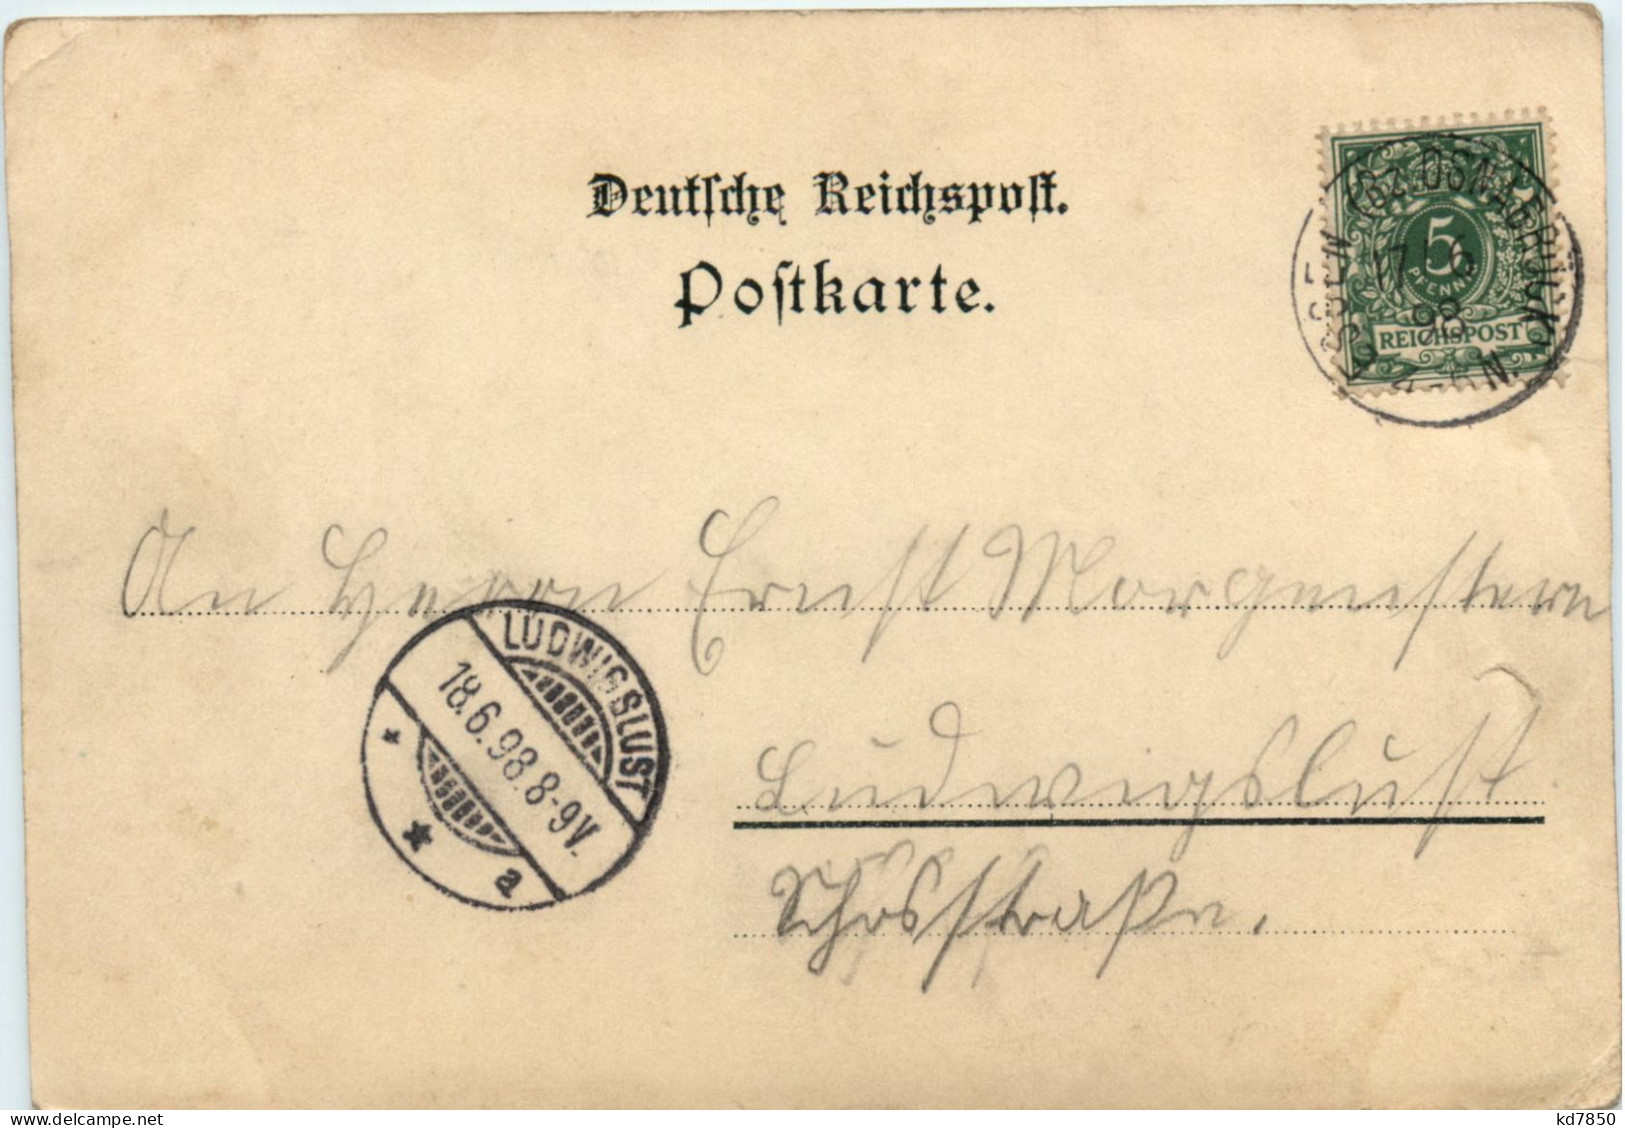 Deutsche Reichspost.
Postkarte.
ESSEN (BZ. OSNABRÜCK)
17/6
98
N.
5
PFENNIG
REICHSPOST
An Herrn Ernst Morgenstern
Ludwigslust
LUDWIGSLUST
18.6.98.8-9V.
a
delcampe.net
kd7850